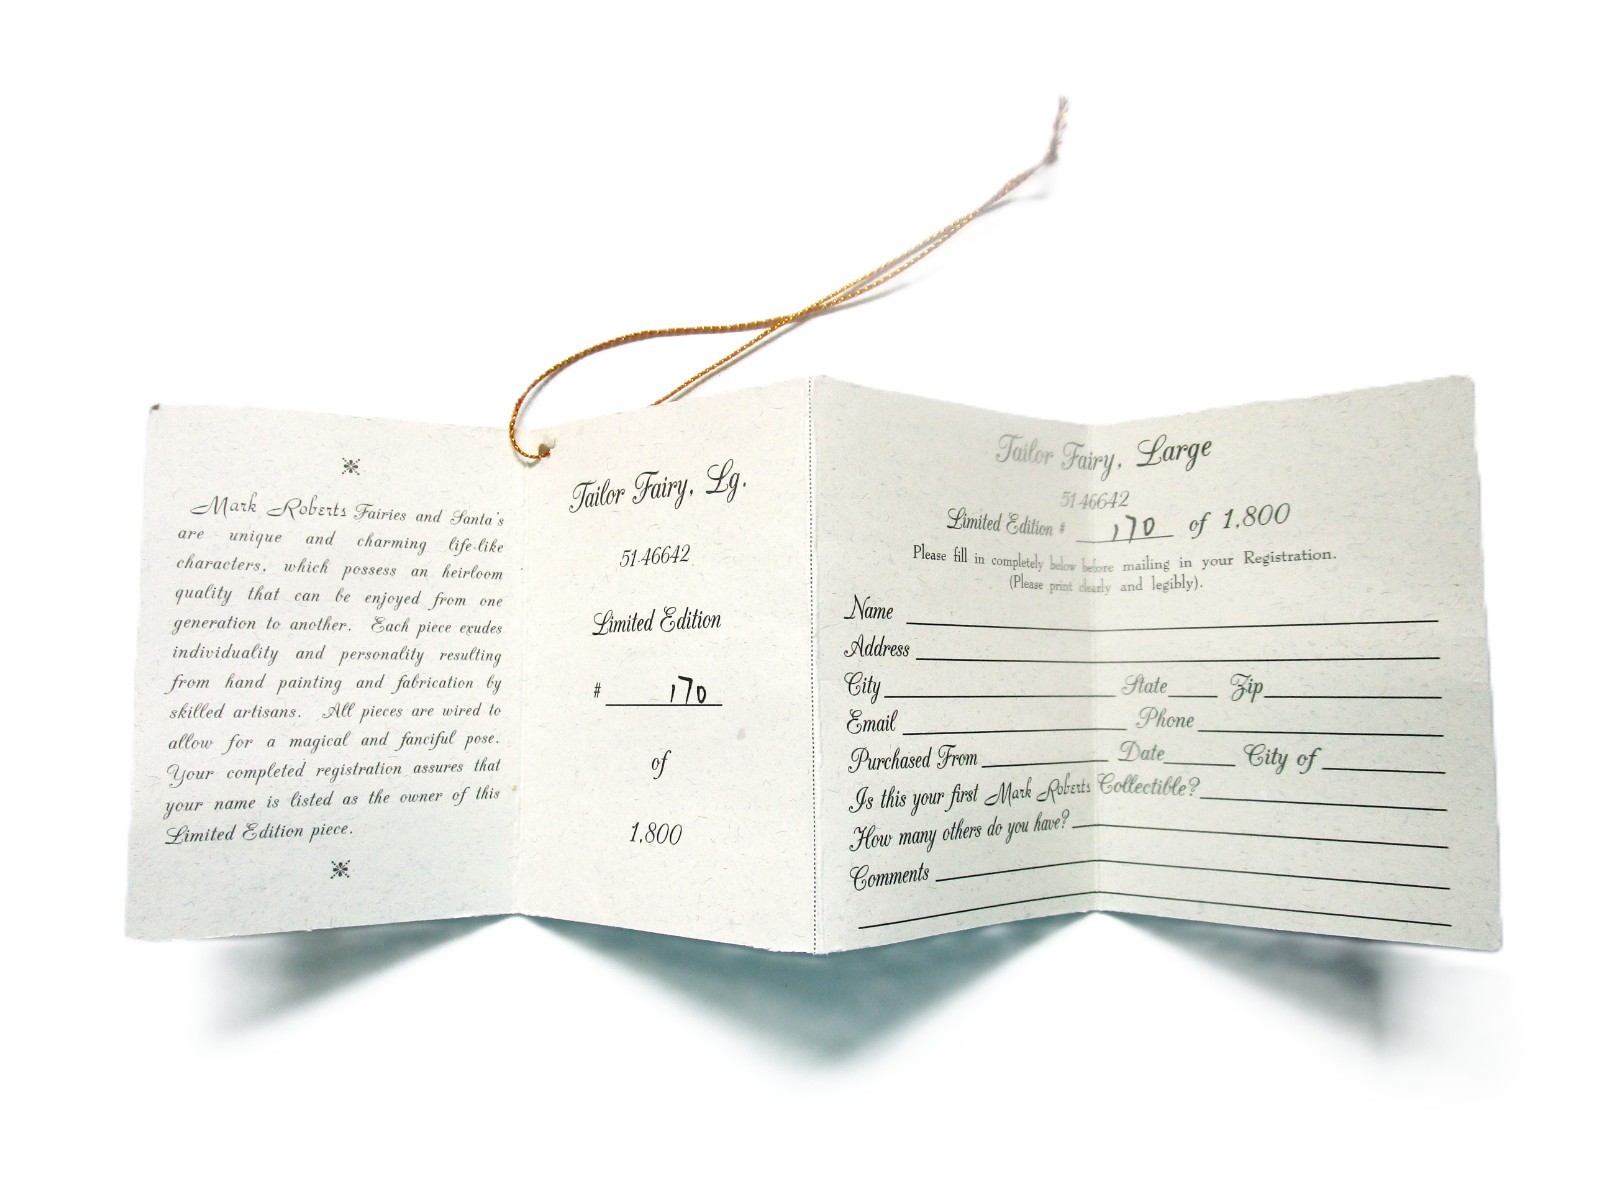 Mark Roberts Fairies and Santa's
are unique and charming life-like
characters, which possess an heirloom
quality that can be enjoyed from one
generation to another. Each piece exudes
individuality and personality resulting
from hand painting and fabrication by
skilled artisans. All pieces are wired to
allow for a magical and fanciful pose.
Your completed registration assures that
your name is listed as the owner of this
Limited Edition piece.
Tailor Fairy, Lg.
51-46642
Limited Edition
# 170
of
1,800
Tailor Fairy, Large
51-46642
Limited Edition # 170 of 1,800
Please fill in completely below before mailing in your Registration.
(Please print clearly and legibly).
Name
Address
City State Zip
Email Phone
Purchased From Date City of
Is this your first Mark Roberts Collectible?
How many others do you have?
Comments